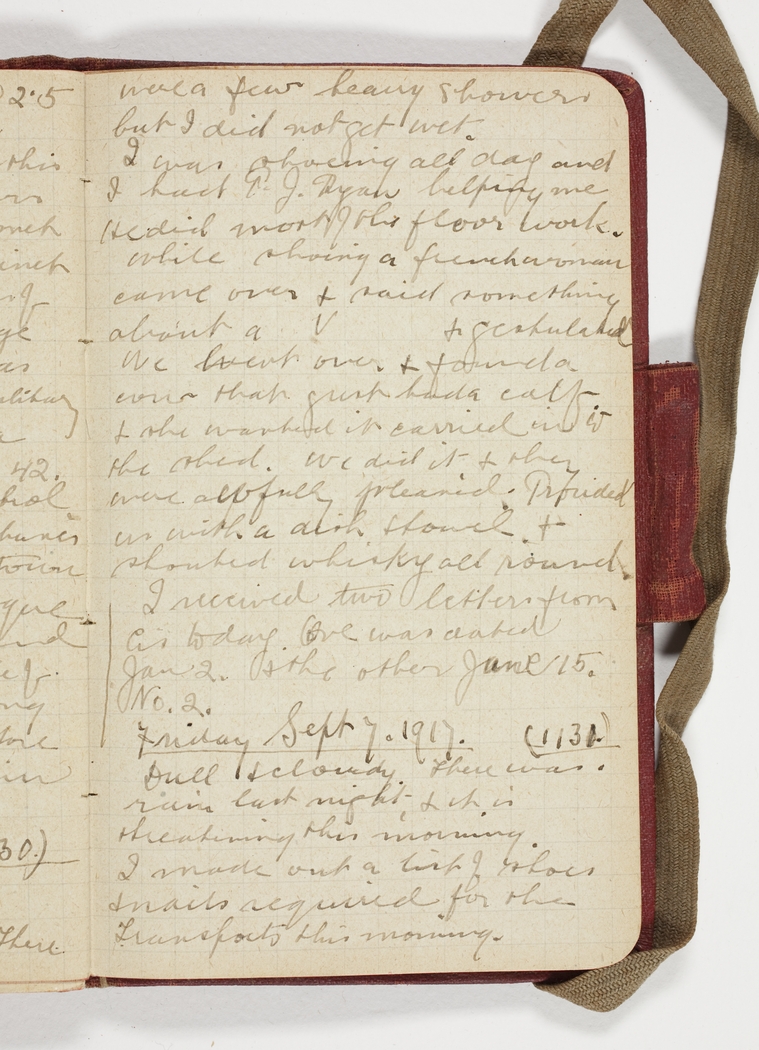 were a few heavy showers
but I did not get wet.
I was shoeing all day and
I had P. J. Ryan helping me
He did most of the floor work.
While shoeing a frenchwoman
came over & said something
about a V & gestulated
We went over & found a
cow that just had a calf
& she wanted it carried in to
the shed. We did it & they
were awfully pleased. Provided
us with a dish & towel &
shouted whisky all round.
I received two letters from
Cis today. One was dated
Jan 2. & the other June 15.
No. 2.
Friday Sept 7. 1917. (1131.)
Dull & cloudy. There was
rain last night, & it is
threatening this morning.
I made out a list of shoes
& nails required for the
Transports this morning.
2.5
this
42.
town
30.)
There